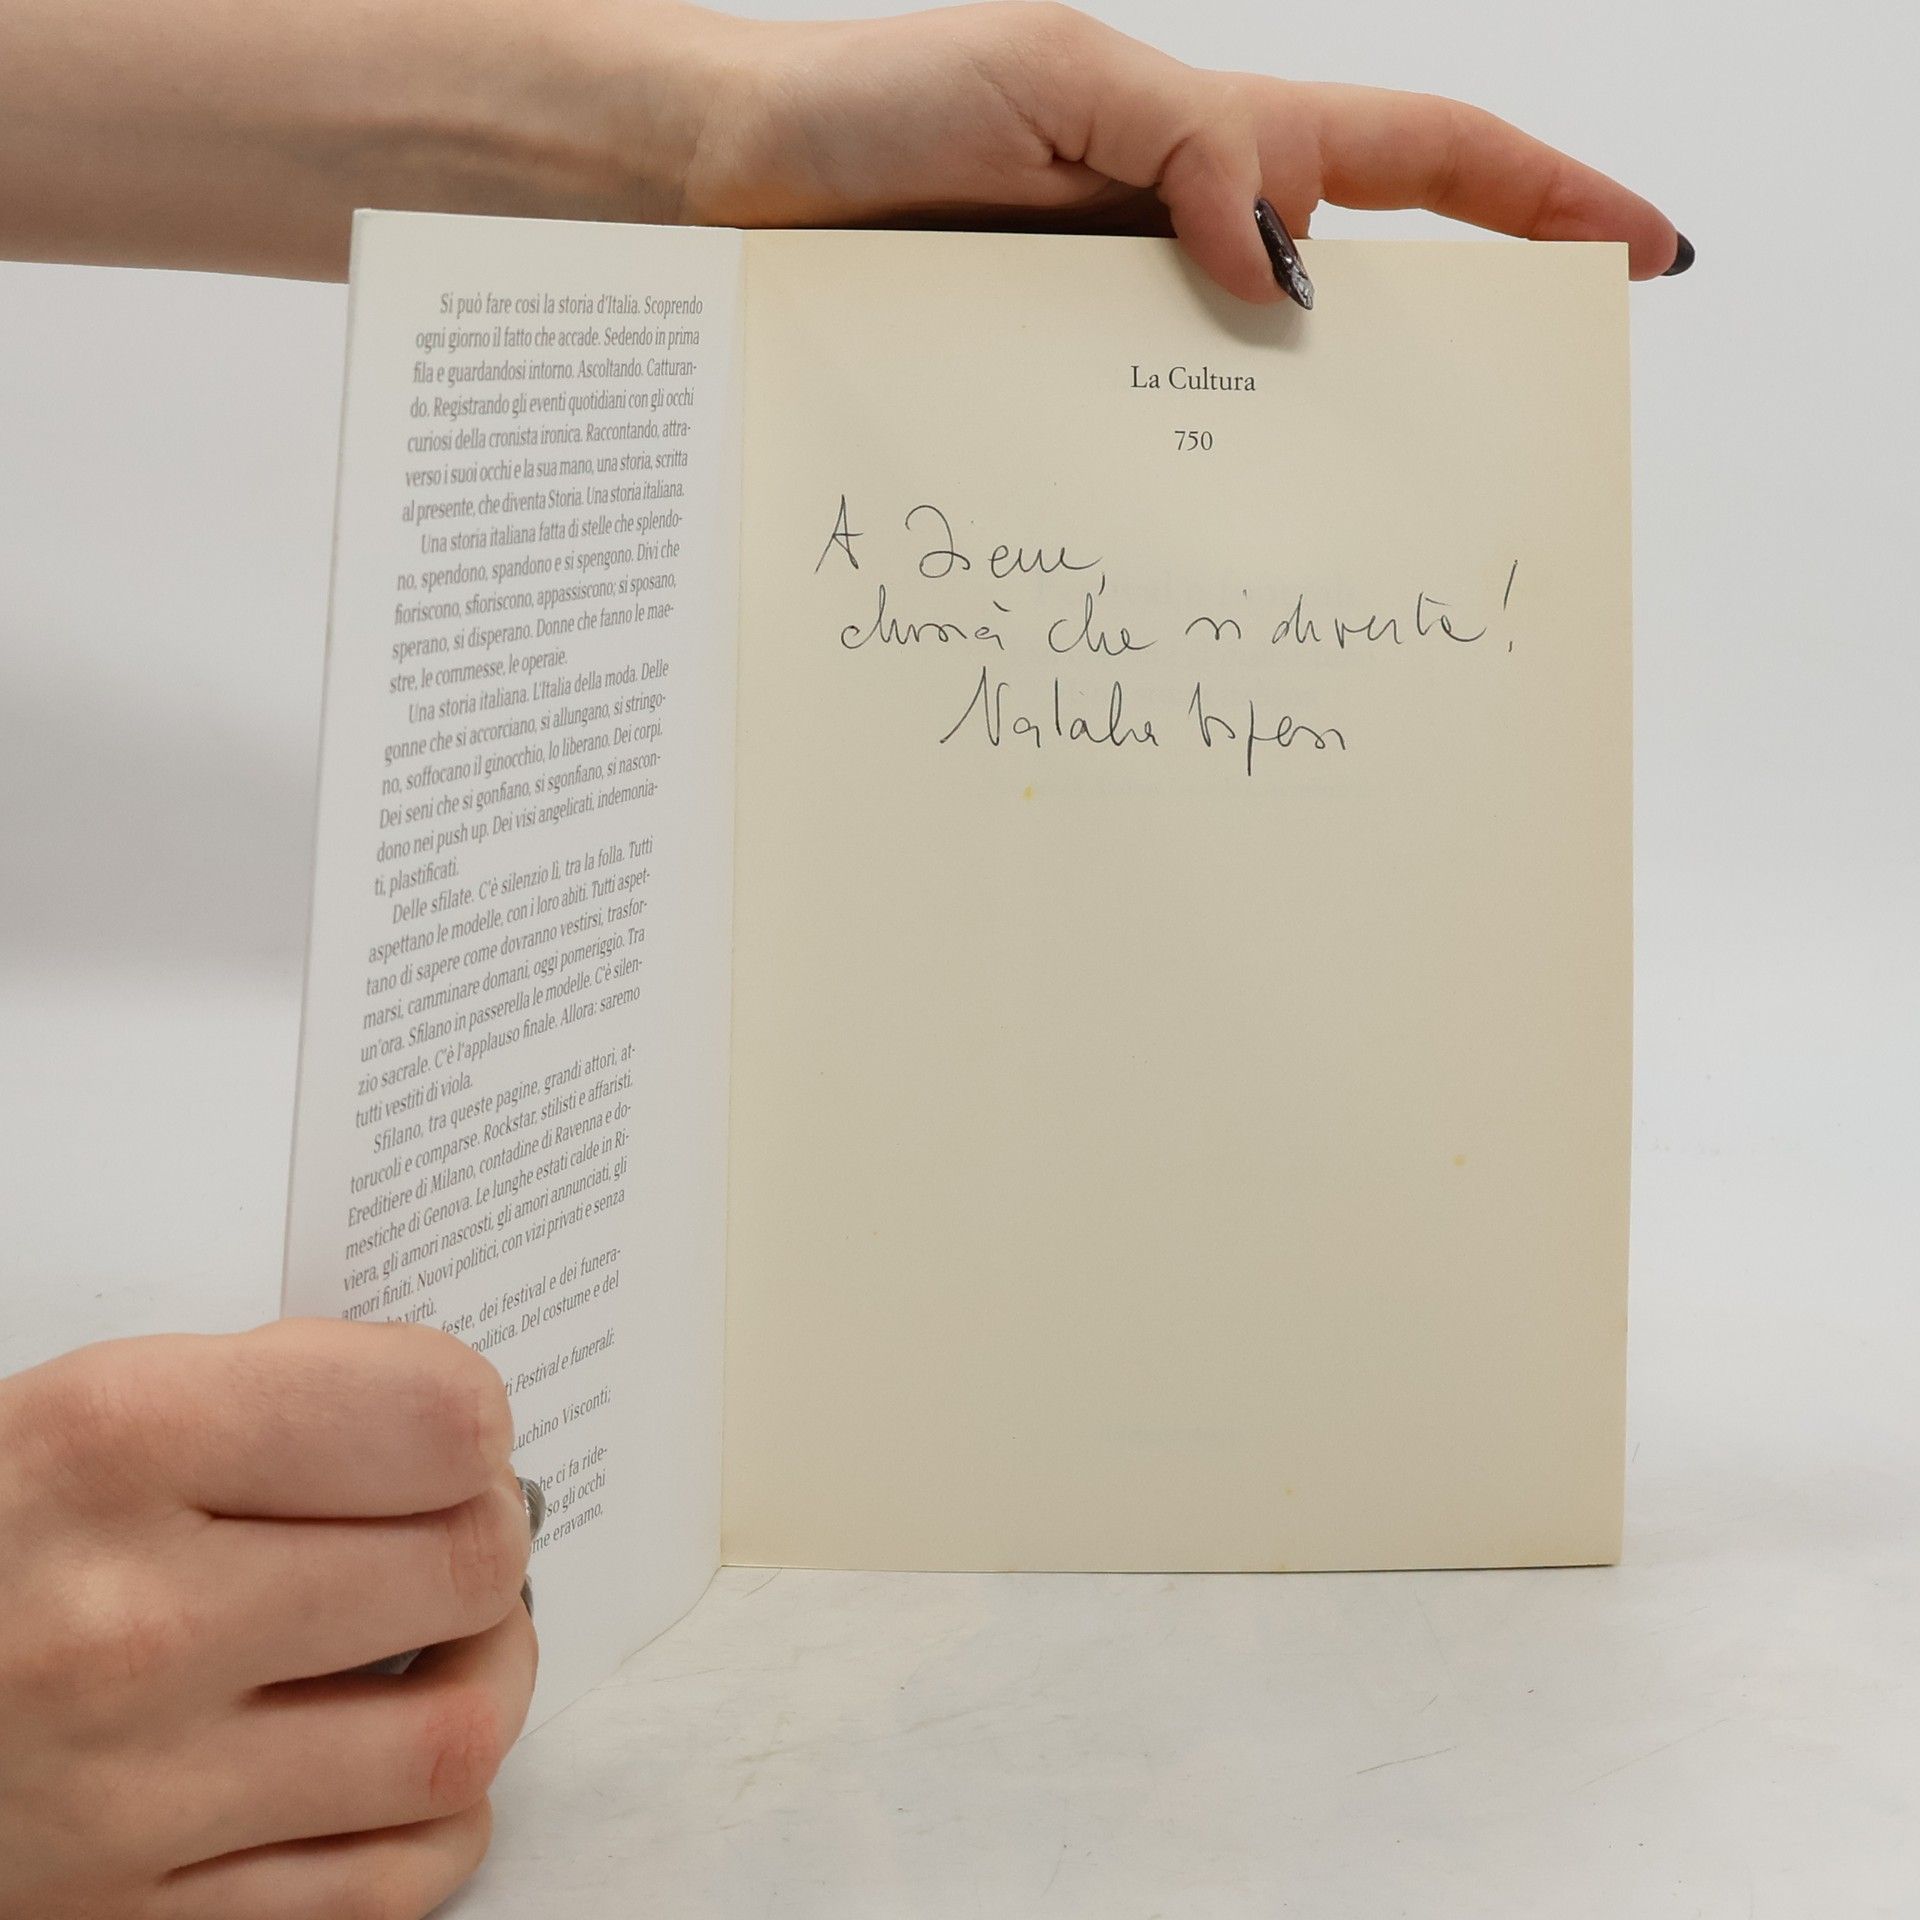 Si può fare così la storia d'Italia. Scoprendo
ogni giorno il fatto che accade. Sedendo in prima
fila e guardandosi intorno. Ascoltando. Catturan-
do. Registrando gli eventi quotidiani con gli occhi
curiosi della cronista ironica. Raccontando, attra-
verso i suoi occhi e la sua mano, una storia, scritta
al presente, che diventa Storia. Una storia italiana.
Una storia italiana fatta di stelle che splendo-
no, spendono, spandono e si spengono. Divi che
fioriscono, sfioriscono, appassiscono; si sposano,
sperano, si disperano. Donne che fanno le mae-
stre, le commesse, le operaie.
Una storia italiana. L'Italia della moda. Delle
gonne che si accorciano, si allungano, si stringo-
no, soffocano il ginocchio, lo liberano. Dei corpi.
Dei seni che si gonfiano, si sgonfiano, si nascon-
dono nei push up. Dei visi angelicati, indemonia-
ti, plastificati.
Delle sfilate. C'è silenzio lì, tra la folla. Tutti
aspettano le modelle, con i loro abiti. Tutti aspet-
tano di sapere come dovranno vestirsi, trasfor-
marsi, camminare domani, oggi pomeriggio. Tra
un'ora. Sfilano in passerella le modelle. C'è silen-
zio sacrale. C'è l'applauso finale. Allora: saremo
tutti vestiti di viola.
Sfilano, tra queste pagine, grandi attori, at-
torucoli e comparse. Rockstar, stilisti e affaristi.
Ereditiere di Milano, contadine di Ravenna e do-
mestiche di Genova. Le lunghe estati calde in Ri-
viera, gli amori nascosti, gli amori annunciati, gli
amori finiti. Nuovi politici, con vizi privati e senza
virtù.
feste, dei festival e dei funera-
politica. Del costume e del
ti Festival e funerali.
Luchino Visconti;
he ci fa ride-
so gli occhi
me eravamo,
La Cultura
750
A Irene,
chissà che si diverta!
Natalia Aspesi